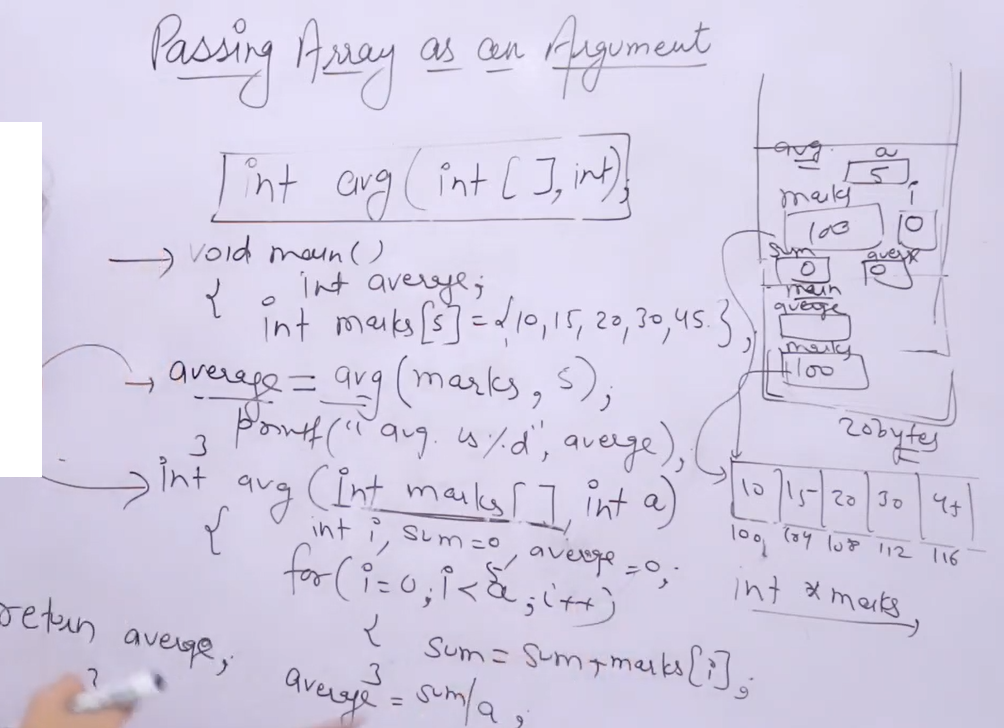 Passing Array as an Argument
int avg (int [ ], int);
void main()
{ int averge;
int marks[5] = {10, 15, 20, 30, 45.};
average = avg (marks, 5);
printf(" avg. is %d", averge),
}
int avg (int marks[ ], int a)
{ int i, sum=0, averge=0;
for (i=0; i<a; i++)
{ sum = sum + marks[i];
}
averge = sum/a;
return averge;
}
avg. a
5
marks i
100 0
sum averge
0 0
main
averge
marks
100
20bytes
10 15 20 30 45
100 104 108 112 116
int *marks,